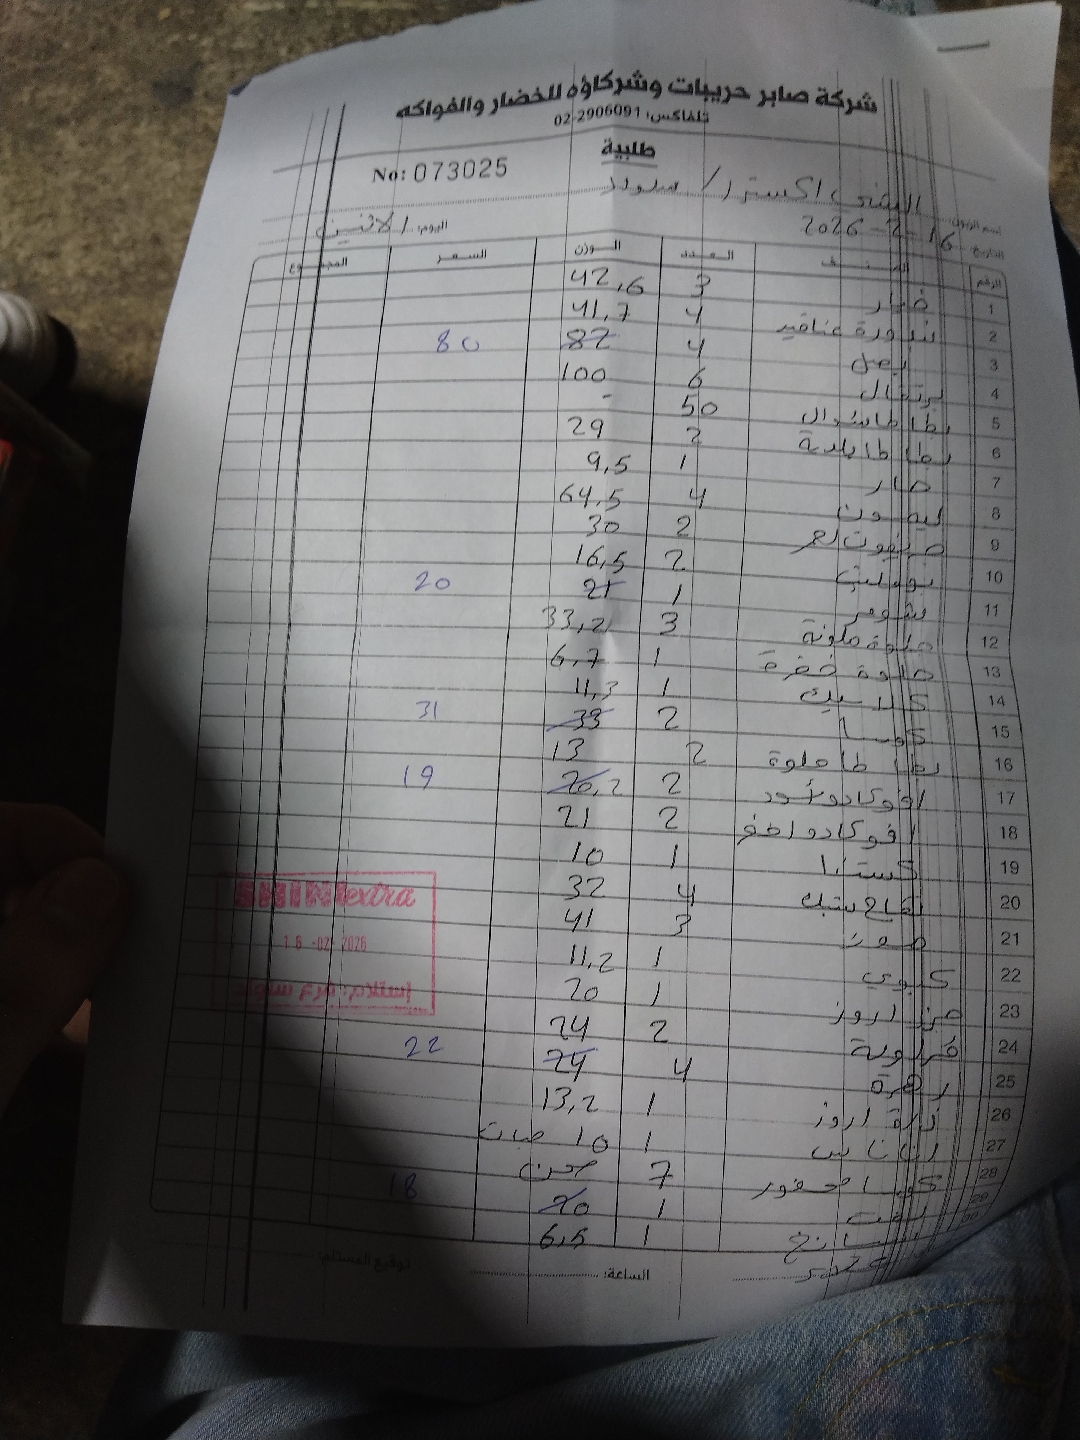 شركة صابر حريبات وشركاؤه للخضار والفواكه
تلفاكس: 02-2906091
طلبية
No: 073025
اكسترا / سلواد
التاريخ: 16-2-2026 اليوم: الاثنين
الرقم الصنف العدد الوزن السعر المجموع
1 خيار 3 42,6
2 بندورة عناقيد 4 41,7
3 بصل 4 82 80
4 برتقال 6 100
5 بطاطا شوال 50 -
6 بطاطا بلدية 2 29
7 حار 1 9,5
8 ليمون 4 64,5
9 2 30
10 2 16,5
11 شومر 1 21 20
12 حلوة ملونة 3 33,2
13 حلوة خضرة 1 6,7
14 كلاسيك 1 11,3
15 كوسا 2 33 31
16 بطاطا حلوة 2 13
17 افوكادو 2 20,2 19
18 افوكادو 2 21
19 كستنا 1 10
20 تفاح 4 32
21 موز 3 41
22 كيوي 1 11,2
23 1 20
24 فراولة 2 24
25 زهرة 4 24 22
26 ذرة 1 13,2
27 اناناس 1 10 حبات
28 كوسا محفور 7 صحن
29 لفت 1 20 18
30 سبانخ 1 6,5
SHINI extra
16-02 2026
إستلام: فرع سلواد
الساعة:
توقيع المستلم: